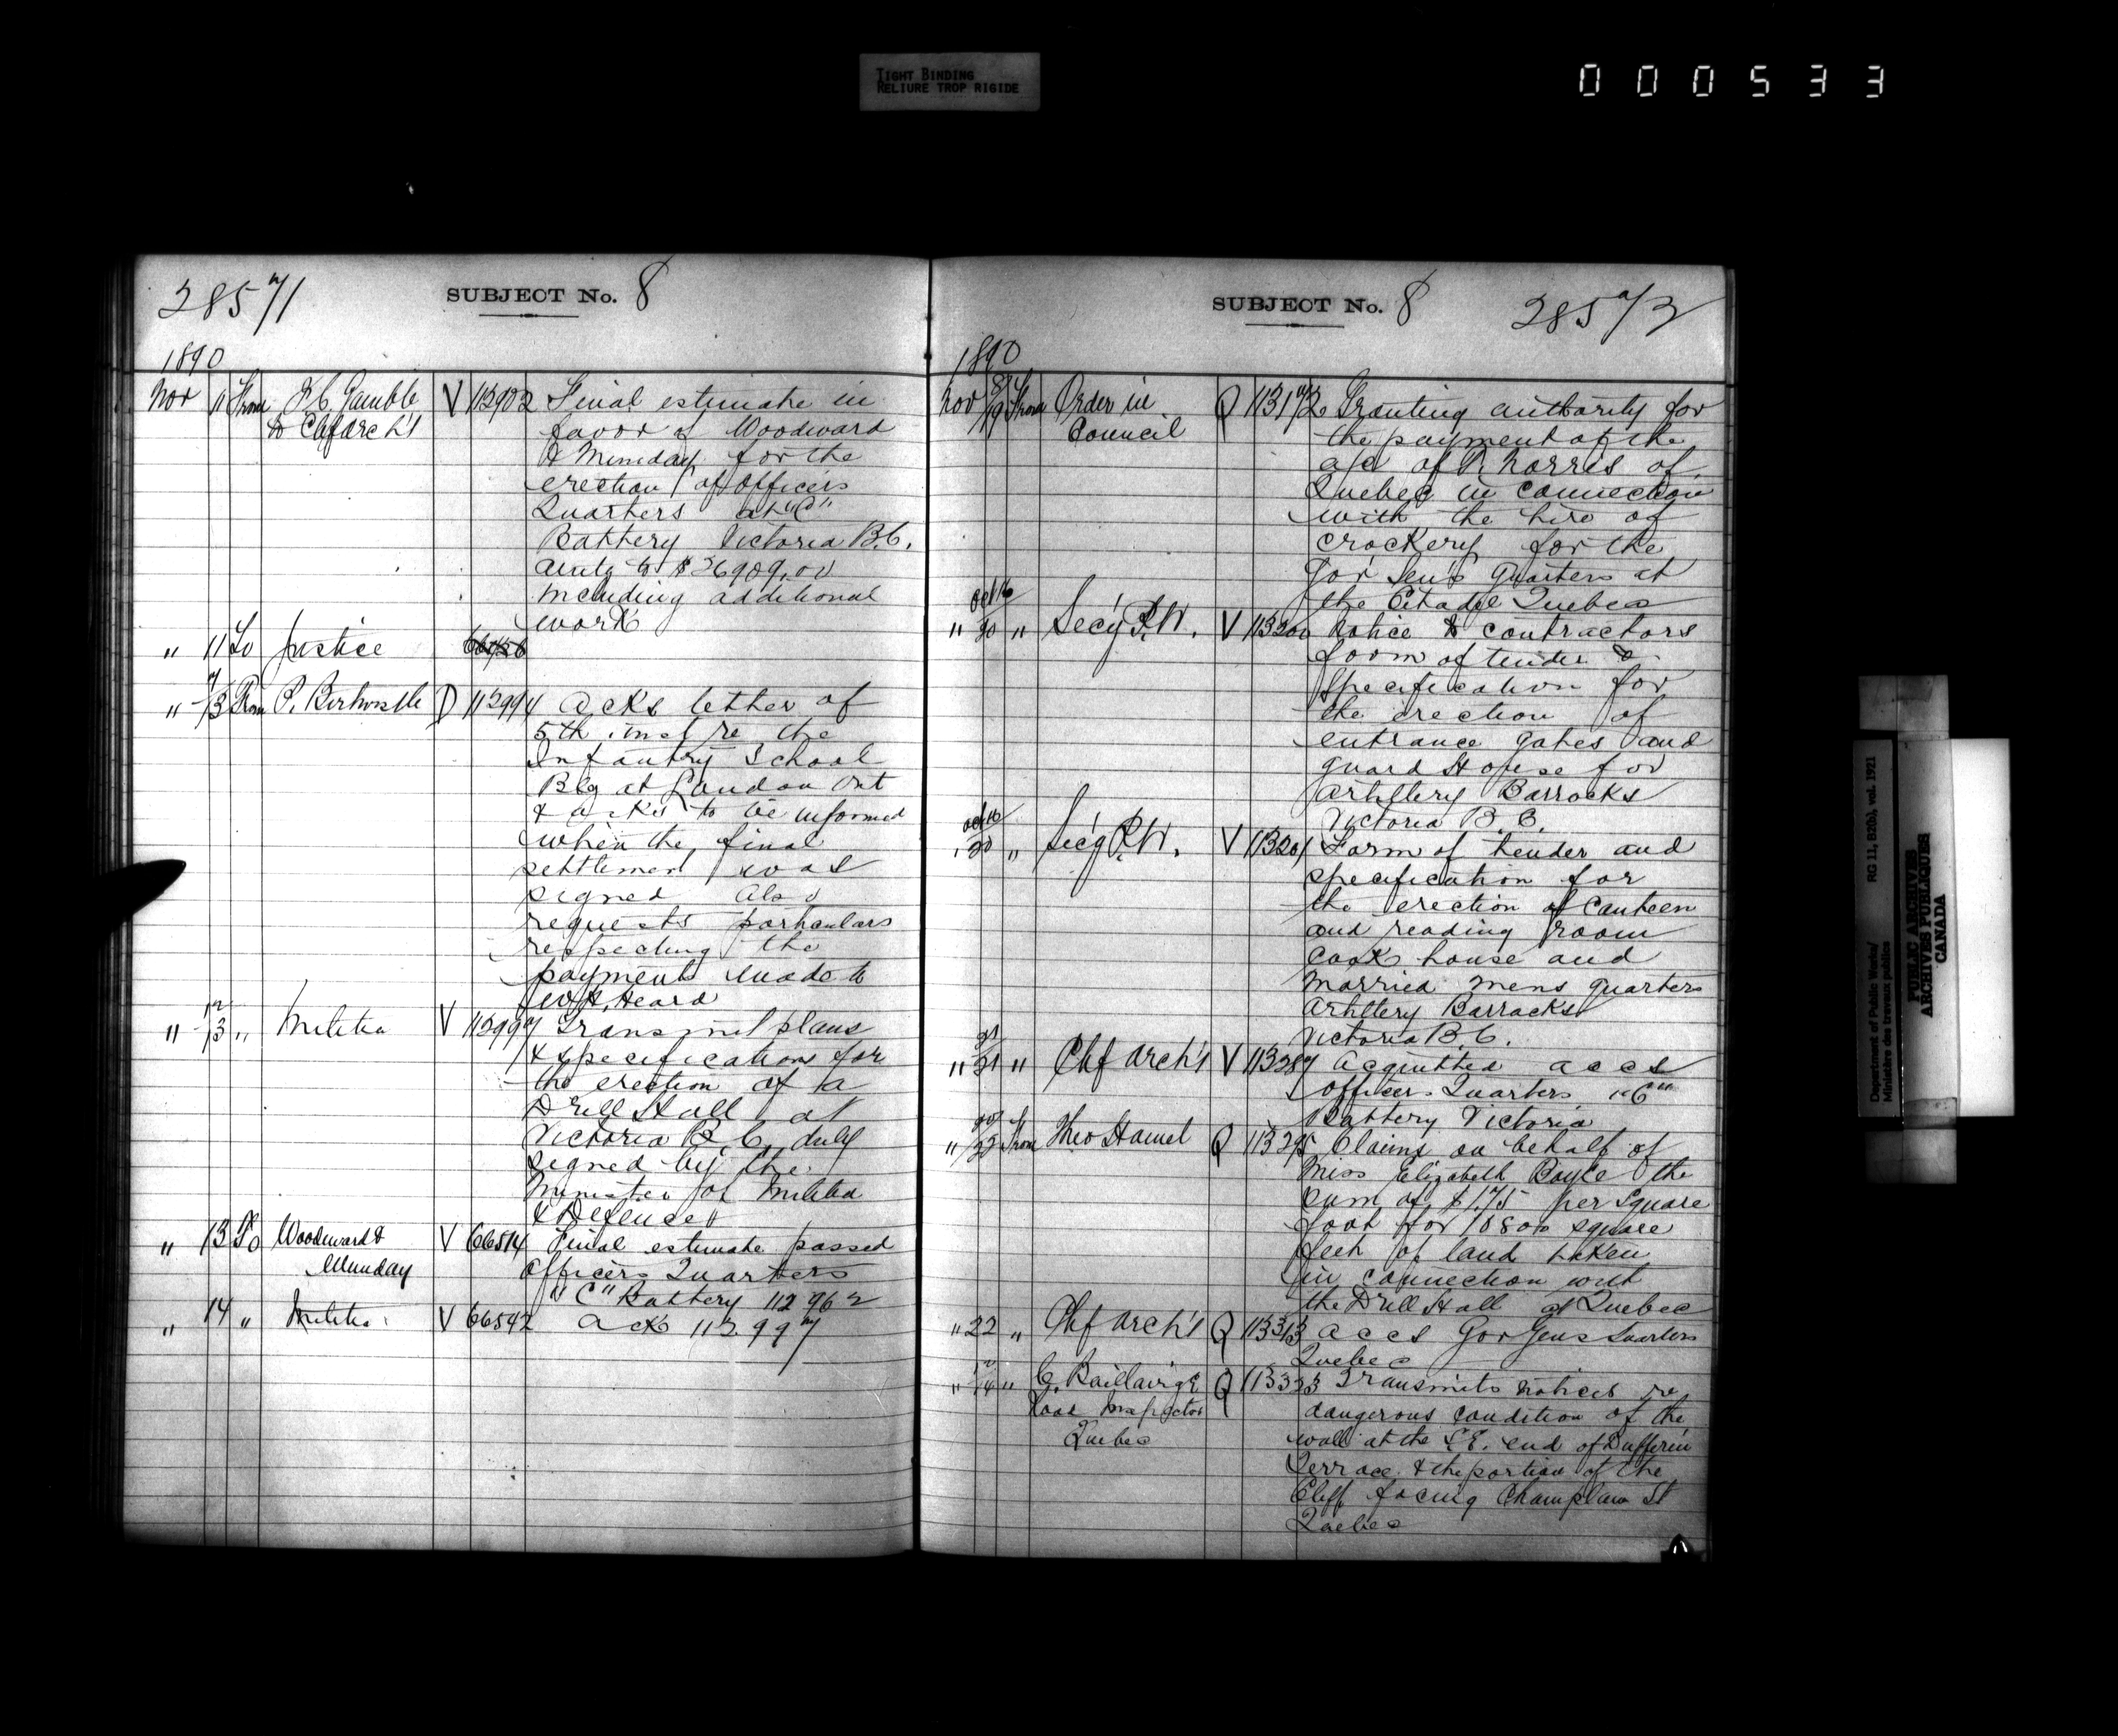 TIGHT BINDING
RELIURE TROP RIGIDE
000533
SUBJECT No. 8
1890
Nov 11 From F.C. Gamble V 112902 Final estimate in
to Chf Arch't favor of Woodward
& Munday for the
erection of Officers
Quarters at "C"
Battery Victoria B.C.
amtg to $26909.00
including additional
work
" 11 To Justice
" 13 From P. Birtwistle D 112994 Acks letter of
5th inst re the
Infantry School
Blg at London Ont
& asks to be informed
when the final
settlement was
signed also
requests particulars
respecting the
payments made to
Heard
" 12/13 " Militia V 112997 Transmit plans
& specifications for
the erection of a
Drill Hall at
Victoria B.C. duly
signed by the
Minister of Militia
& Defence
" 13 To Woodward & V 66514 Final estimate passed
Munday Officers Quarters
"C" Battery 112962
" 14 " Militia V 66542 Ack 112997
SUBJECT No. 8
1890
Nov 19 From Order in Q Granting authority for
Council the payment of the
a/c of R. Norris of
Quebec in connection
with the hire of
crockery for the
Gov Gen's Quarters at
the Citadel Quebec
Oct 16
" 20 " Sec'y P.W. V 113200 Notice to contractors
form of tender &
specification for
the erection of
entrance gates and
guard House for
Artillery Barracks
Victoria B.C.
Oct 16
" 20 " Sec'y P.W. V 113201 Form of tender and
specification for
the erection of Canteen
and reading room
cook house and
married mens quarters
Artillery Barracks
Victoria B.C.
" 21 " Chf Arch't V 113287 Acquitted accs
Officers Quarters "C"
Battery Victoria
" 22 From Theo Hamel Q 113295 Claims on behalf of
Miss Elizabeth Boyle the
sum of $1.75 per Square
foot for 10800 square
feet of land taken
in connection with
the Drill Hall at Quebec
" 22 " Chf Arch't Q 113313 accs Gov Gens Quarters
Quebec
" 14 " C. Baillairgé Q 113323 Transmits notices re
Road Inspector dangerous condition of the
Quebec wall at the S.E. end of Dufferin
Terrace & the portion of the
Cliff facing Champlain St
Quebec
Department of Public Works/
Ministère des travaux publics
RG 11, B2(b), vol. 1921
PUBLIC ARCHIVES
ARCHIVES PUBLIQUES
CANADA